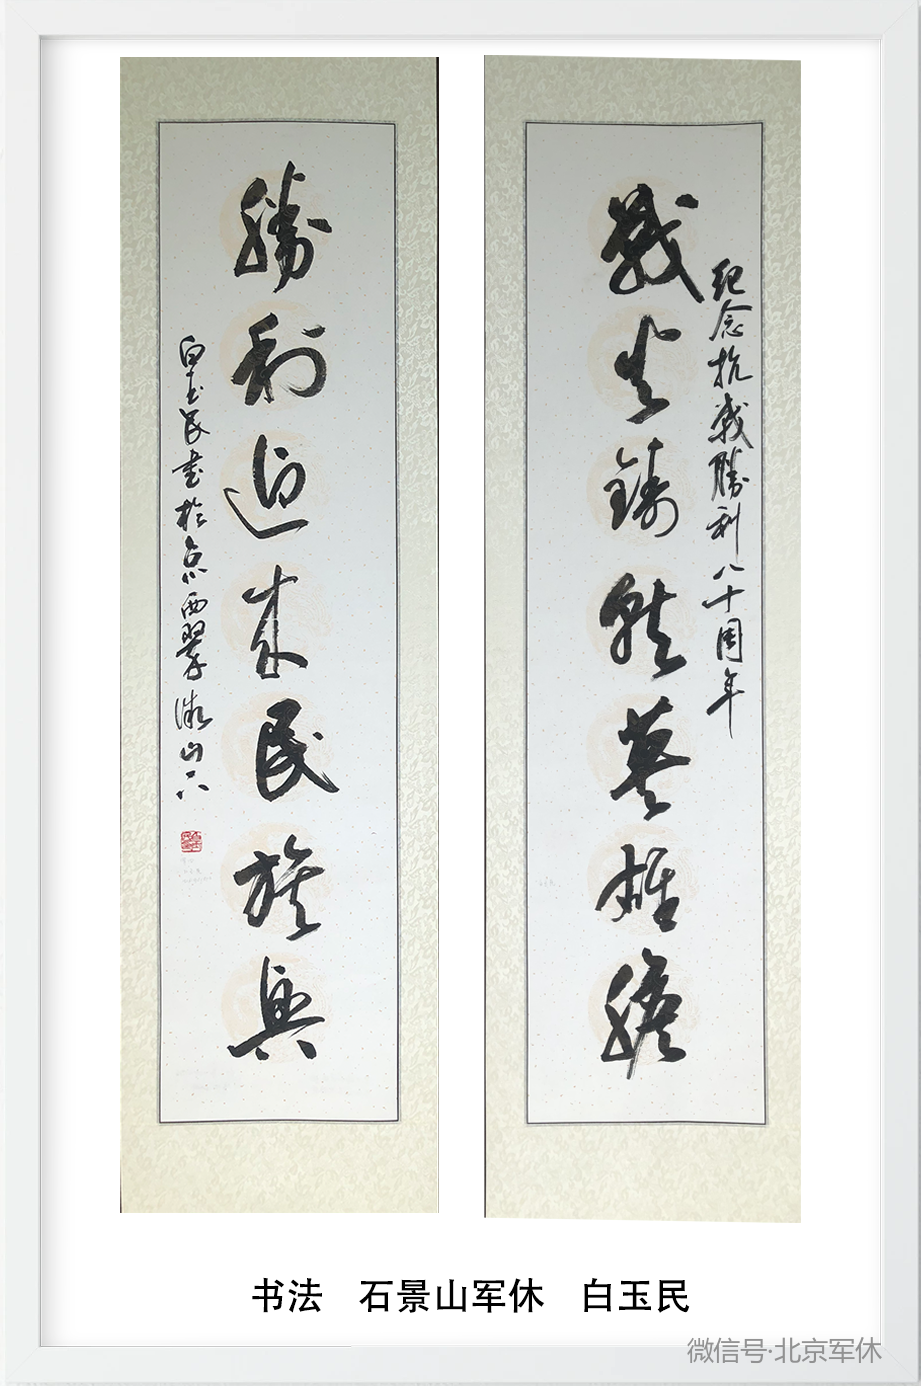 紀念抗戰勝利八十周年
戰火鑄就英雄膽
勝利迎来民族興
白玉民書於京西翠微山下
书法 石景山军休 白玉民
微信号·北京军休